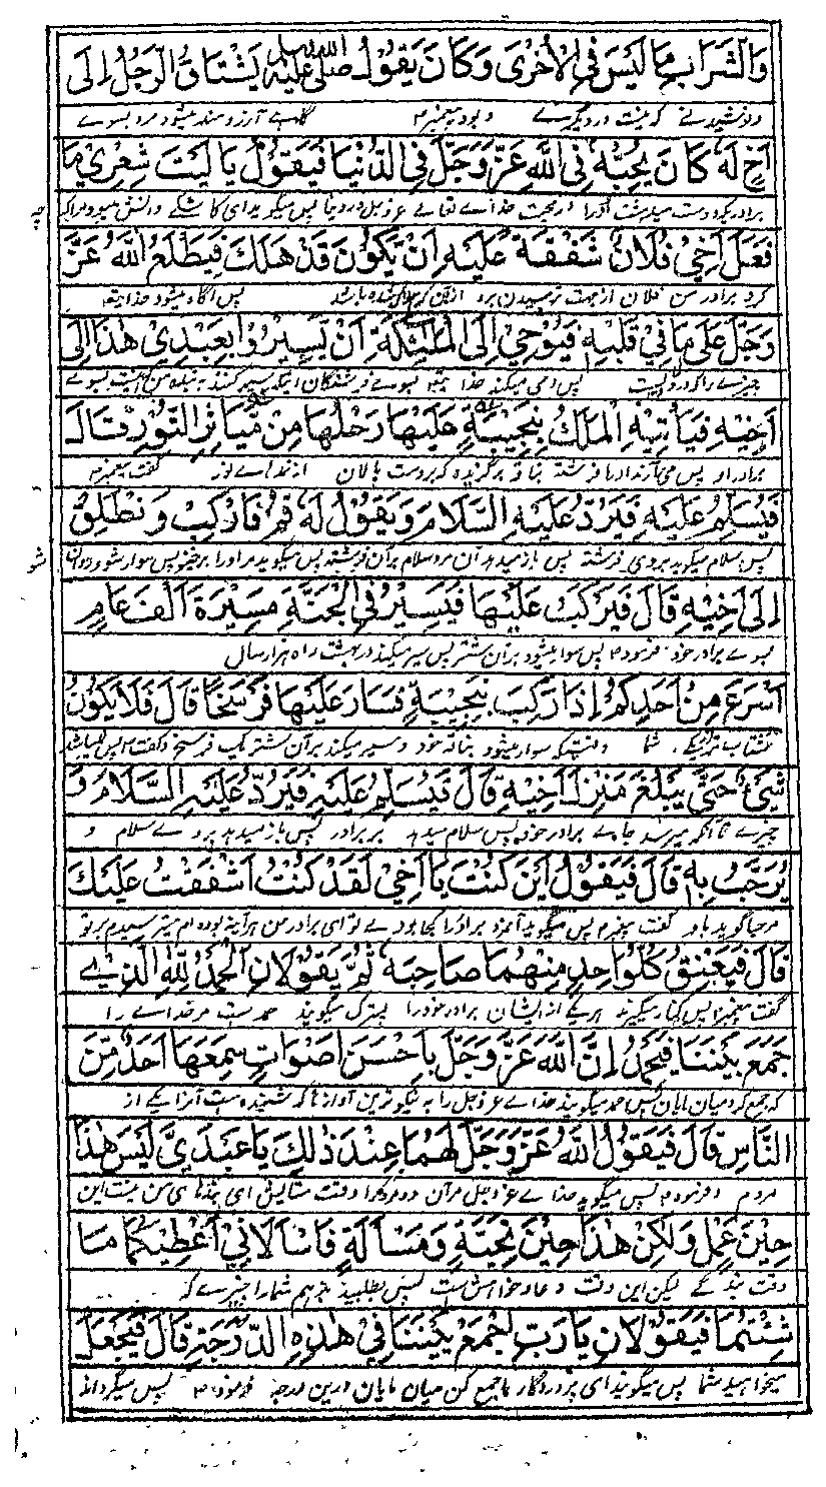 وَالشَّرَابِ مَا لَيْسَ فِي الْأُخْرَى وَكَانَ يَقُولُ صلى الله عليه وسلم يَشْتَاقُ الرَّجُلُ إِلَى
و نوشیدنے که نیست در دیگرے و بود پیغمبر م گاہے آرزومند میشود مرد بسوے
أَخٍ لَهُ كَانَ يُحِبُّهُ فِي اللَّهِ عَزَّ وَجَلَّ فِي الدُّنْيَا فَيَقُولُ يَا لَيْتَ شِعْرِي مَا
برادریکه دوست میداشت اورا در محبت خداے تعالے عزوجل در دنیا پس میگوید ای کاشکے دانش میبود مرا که چه
فَعَلَ أَخِي فُلَانٌ شَفَقَةً عَلَيْهِ أَنْ يَكُونَ قَدْ هَلَكَ فَيَطَّلِعُ اللَّهُ عَزَّ
کرد برادر من فلان از جهت ترسیدن برو ازین که هلاک شده باشد پس آگاه میشود خدایتعا
وَجَلَّ عَلَى مَا فِي قَلْبِهِ فَيُوحِي إِلَى الْمَلٰئِكَةِ أَنْ يَسِيرُوا بِعَبْدِي هٰذَا إِلَى
چیزے را که در دلیست پس وحی میکند خدا بسوے فرشتگان اینکه سیر کنند به بنده من این بسوے
أَخِيهِ فَيَأْتِيهِ الْمَلَكُ بِنَجِيبَةٍ عَلَيْهَا رَحْلُهَا مِنْ مَيَاثِرِ النُّورِ قَالَ
برادر او پس می آرند اورا فرشته بناقه برگزیده که بروست پالان از نمدهاے نور گفت پیغمبر م
فَيُسَلِّمُ عَلَيْهِ فَيَرُدُّ عَلَيْهِ السَّلَامَ وَيَقُولُ لَهُ قُمْ فَارْكَبْ وَنْطَلِقْ
پس سلام میگوید بروی فرشته پس باز میدهد آن مرد سلام بر آن فرشته پس میگوید مر اورا برخیز پس سوار شو و روان شو
إِلَى أَخِيهِ قَالَ فَيَرْكَبُ عَلَيْهَا فَيَسِيرُ فِي الْجَنَّةِ مَسِيرَةَ أَلْفِ عَامٍ
بسوے برادر خود فرمود م پس سوار میشود بر آن شتر پس سیر میکند در بهشت راه هزار سال
أَسْرَعَ مِنْ أَحَدِكُمْ إِذَا رَكِبَ نَجِيبَةٍ فَسَارَ عَلَيْهَا فَرْسَخًا قَالَ فَلَا يَكُونُ
شتاب تر از یکے شما وقتیکه سوار میشود بناقه خود و سیر میکند بر آن شتر یک فرسخ و گفت م پس نمیباشد
شَيْءٌ حَتَّى يَبْلُغَ مَنْزِلَ أَخِيهِ قَالَ فَيُسَلِّمُ عَلَيْهِ فَيَرُدُّ عَلَيْهِ السَّلَامَ وَ
چیزے تا آنکه میرسد جاے برادر خود پس سلام میدهد بر برادر پس باز میدهد بروے سلام و
يُرَحِّبُ بِهِ قَالَ فَيَقُولُ أَيْنَ كُنْتَ يَا أَخِي لَقَدْ كُنْتُ أَشْفَقْتُ عَلَيْكَ
مرحبا گوید باو گفت پیغمبر م پس میگوید آنمرد برادر را کجا بودے تو ای برادر من هر آینه بوده ام میترسیدم بر تو
قَالَ فَيَعْتَنِقُ كُلُّ وَاحِدٍ مِنْهُمَا صَاحِبَهُ ثُمَّ يَقُولَانِ الْحَمْدُ لِلَّهِ الَّذِي
گفت پیغمبر پس کنار میگیرد هر یکے از ایشان برادر خود را پستر میگویند حمد ست مر خداے را
جَمَعَ بَيْنَنَا فَيَحْمَدُ إِنَّ اللَّهَ عَزَّ وَجَلَّ بِأَحْسَنِ أَصْوَاتٍ سَمِعَهَا أَحَدٌ مِنَ
که جمع کرد میان مایان پس حمد میگویند خداے عزوجل را به نیکوترین آوازها که شنیده است آنرا یکے از
النَّاسِ قَالَ فَيَقُولُ اللَّهُ عَزَّ وَجَلَّ لَهُمَا عِنْدَ ذٰلِكَ يَا عَبْدَيَّ لَيْسَ هٰذَا
مردم و فرمود م پس میگوید خداے عزوجل مر آن دو مرد را وقت ستایش ای بندهای من نیست این
حِينَ عَمَلٍ وَلٰكِنْ هٰذَا حِينَ تَحِيَّةٍ وَمَسْأَلَةٍ فَاسْأَلَانِي أُعْطِيكُمَا مَا
وقت بندگے لیکن این وقت دعا و خواهش است پس بطلبید بدهم شمارا چیزے که
شِئْتُمَا فَيَقُولَانِ يَا رَبِّ اجْمَعْ بَيْنَنَا فِي هٰذِهِ الدَّرَجَةِ قَالَ فَيَجْعَلُ
میخواهید شما پس میگویند ای پروردگار ما جمع کن میان مایان درین درجه فرمود م پس میگرداند